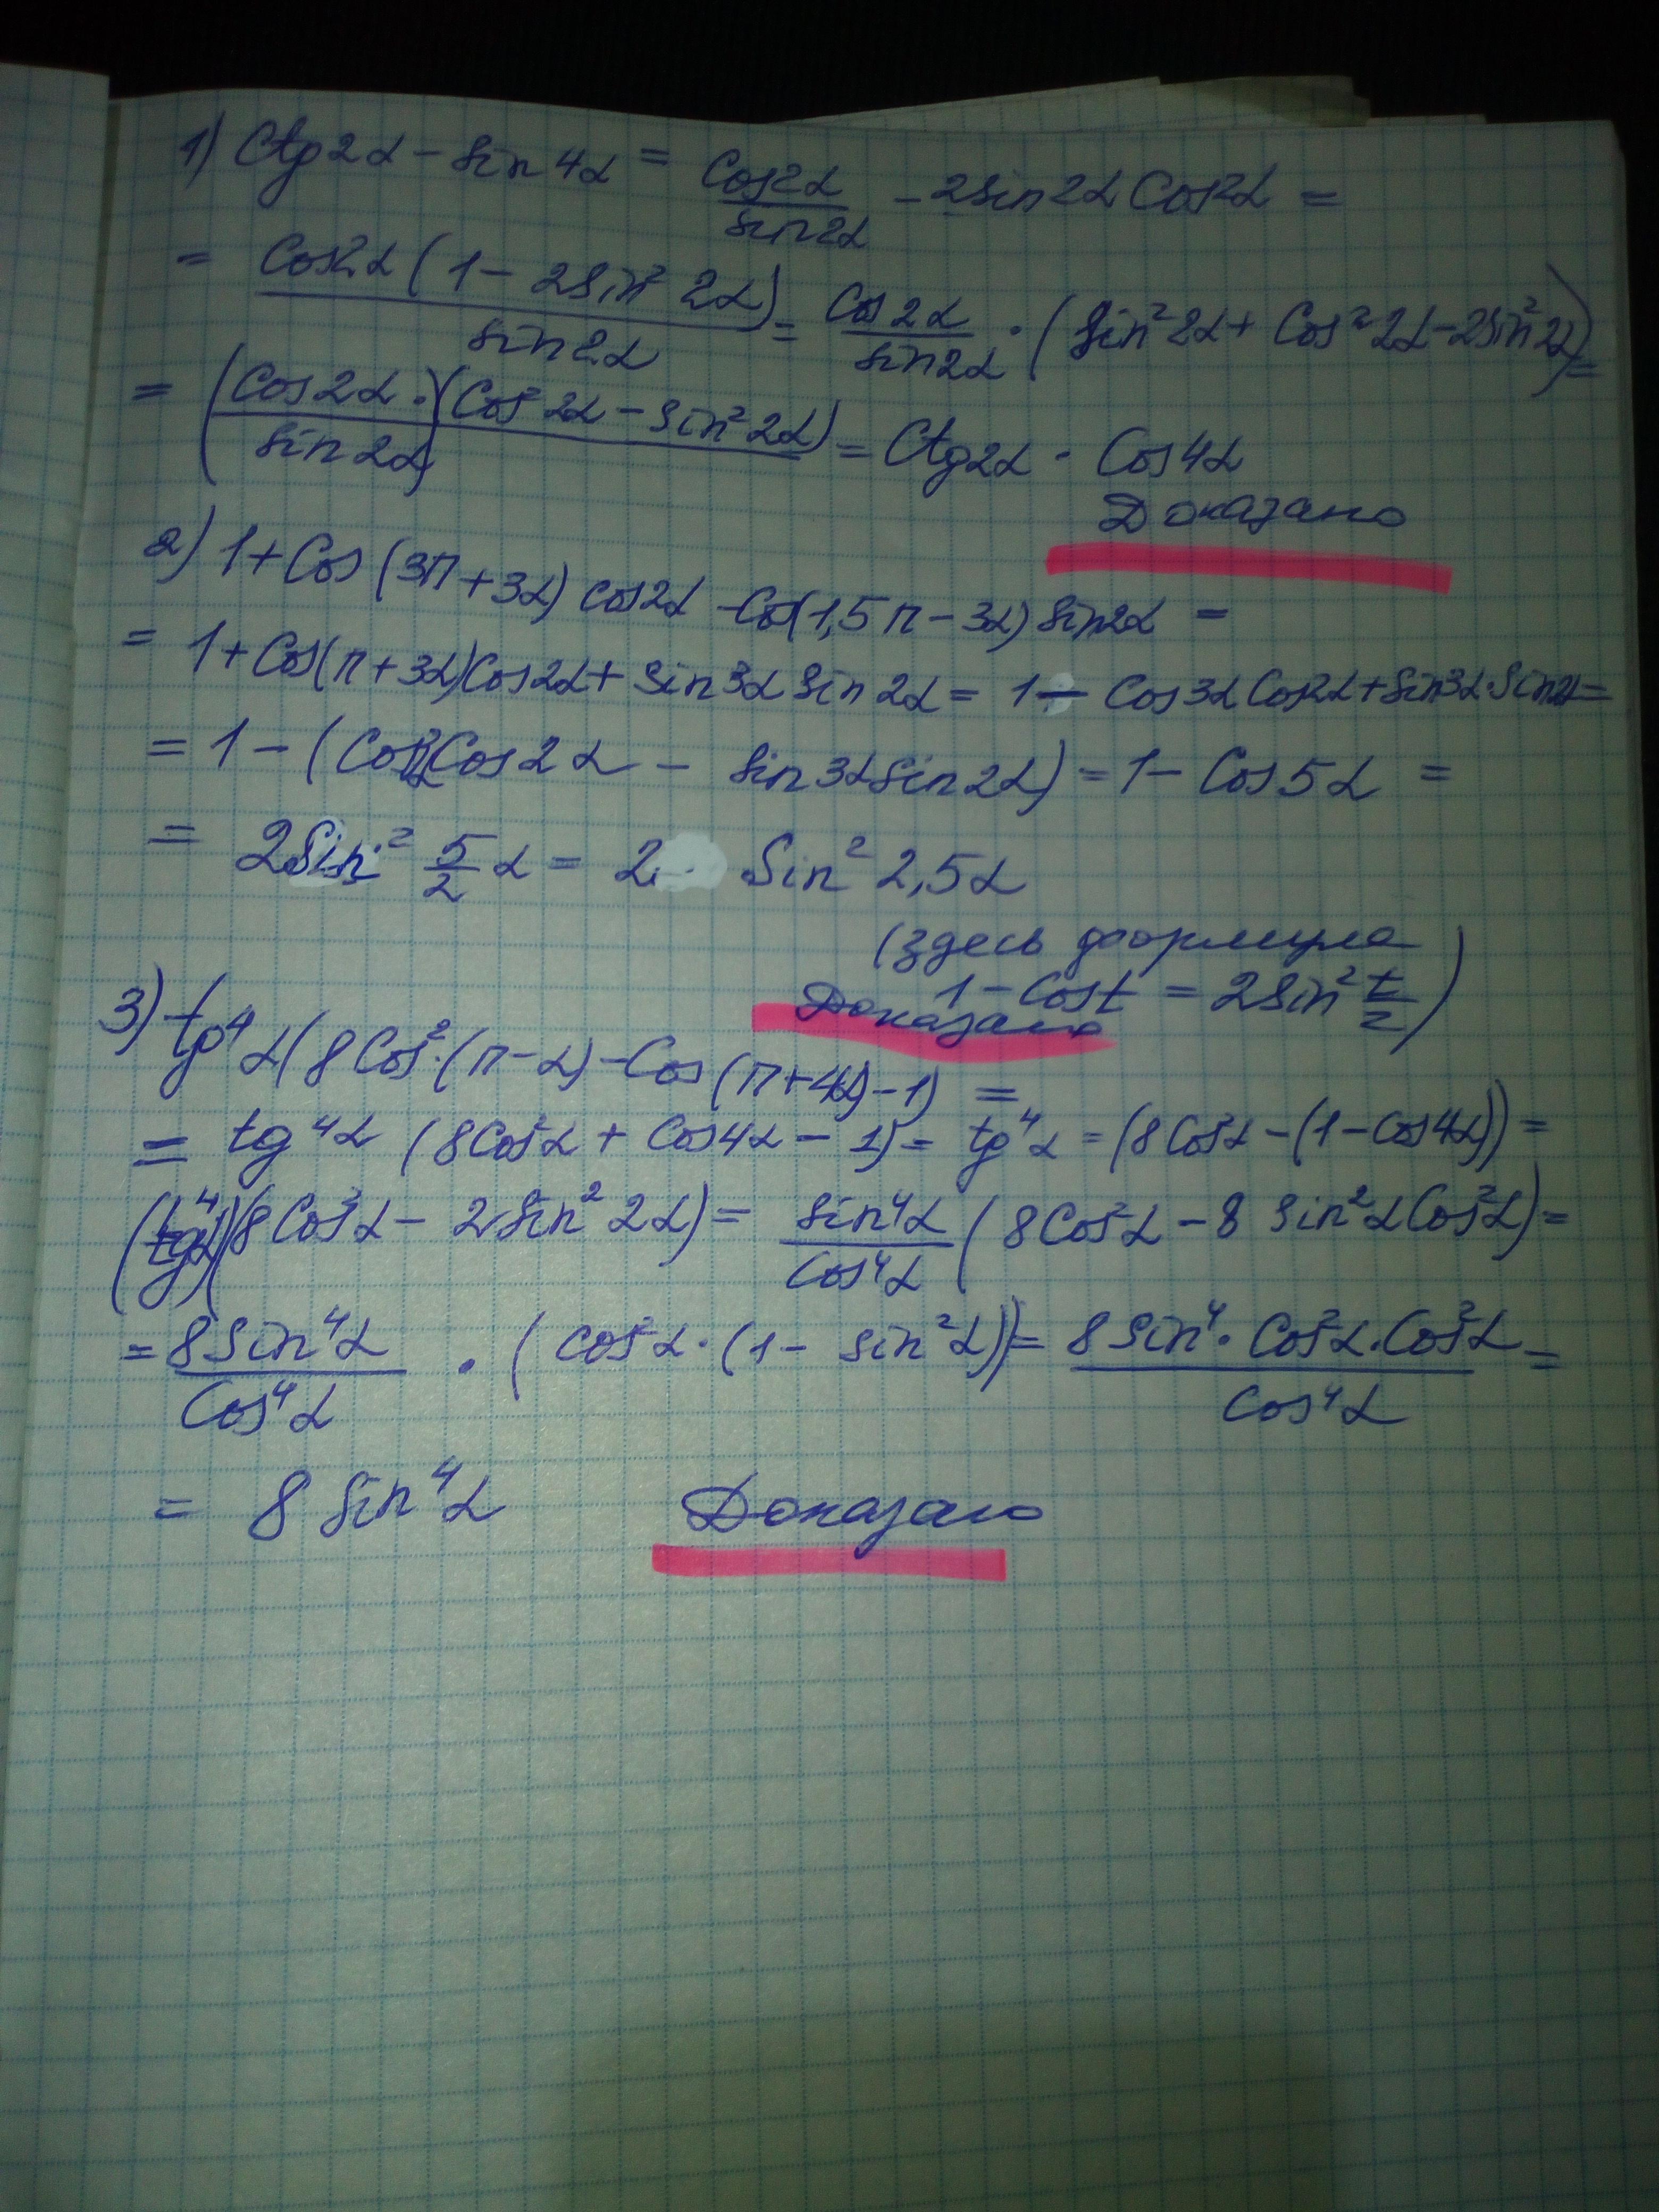 1) Ctg2α - sin4α = Cos2α/sin2α - 2sin2αCos2α =
= Cos2α(1 - 2Sin²2α)/sin2α = Cos2α/sin2α · (Sin²2α + Cos²2α - 2Sin²2α) =
= (Cos2α/sin2α)·(Cos²2α - sin²2α) = Ctg2α · Cos4α
Доказано
2) 1 + Cos(3π + 3α) cos2α - Cos(1,5π - 3α) sin2α =
= 1 + Cos(π + 3α)Cos2α + Sin3α Sin2α = 1 - Cos3α Cos2α + Sin3α·Sin2α =
= 1 - (Cos3αCos2α - Sin3αSin2α) = 1 - Cos5α =
= 2Sin² 5/2 α = 2 Sin² 2,5α
(здесь формула
1 - Cost = 2Sin² t/2)
Доказано
3) tg⁴α(8Cos²(π - α) - Cos(π + 4α) - 1) =
= tg⁴α (8Cos²α + Cos4α - 1) = tg⁴α = (8Cos²α - (1 - Cos4α)) =
(tg⁴α)(8Cos²α - 2Sin²2α) = sin⁴α/Cos⁴α (8Cos²α - 8 Sin²αCos²α) =
= 8Sin⁴α/Cos⁴α · (Cos²α·(1 - Sin²α)) = 8Sin⁴·Cos²α·Cos²α/Cos⁴α =
= 8 Sin⁴α Доказано